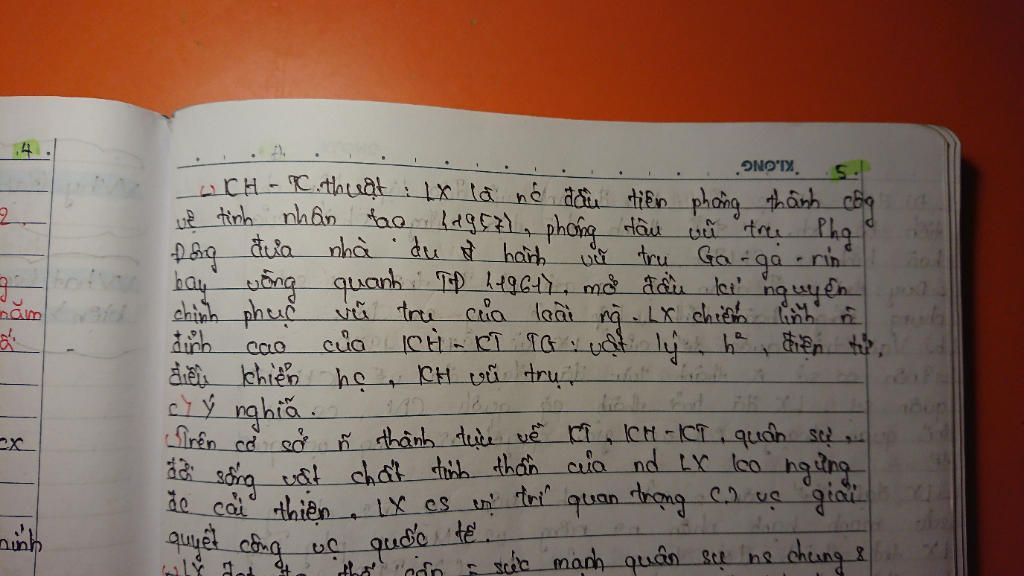 .4.
KLONG
5.
KH - K.thuật : LX là nc đầu tiên phóng thành công
vệ tinh nhân tạo (1957), phóng tàu vũ trụ Phg
Đông đưa nhà du hành vũ trụ Ga-ga-rin
bay vòng quanh TĐ (1961), mở đầu kỉ nguyên
chinh phục vũ trụ của loài ng. LX chiếm lĩnh ñ
đỉnh cao của KH-KT TG: vật lý, h², điện tử,
điều khiển học, KH vũ trụ.
c) Ý nghĩa.
Trên cơ sở ñ thành tựu về KT, KH-KT, quân sự,
đời sống vật chất tinh thần của nd LX ko ngừng
đc cải thiện, LX cs vị trí quan trọng (.) vc giải
quyết công vc quốc tế.
sức mạnh quân sự ns chung
2.
g
năm
cx
ninh